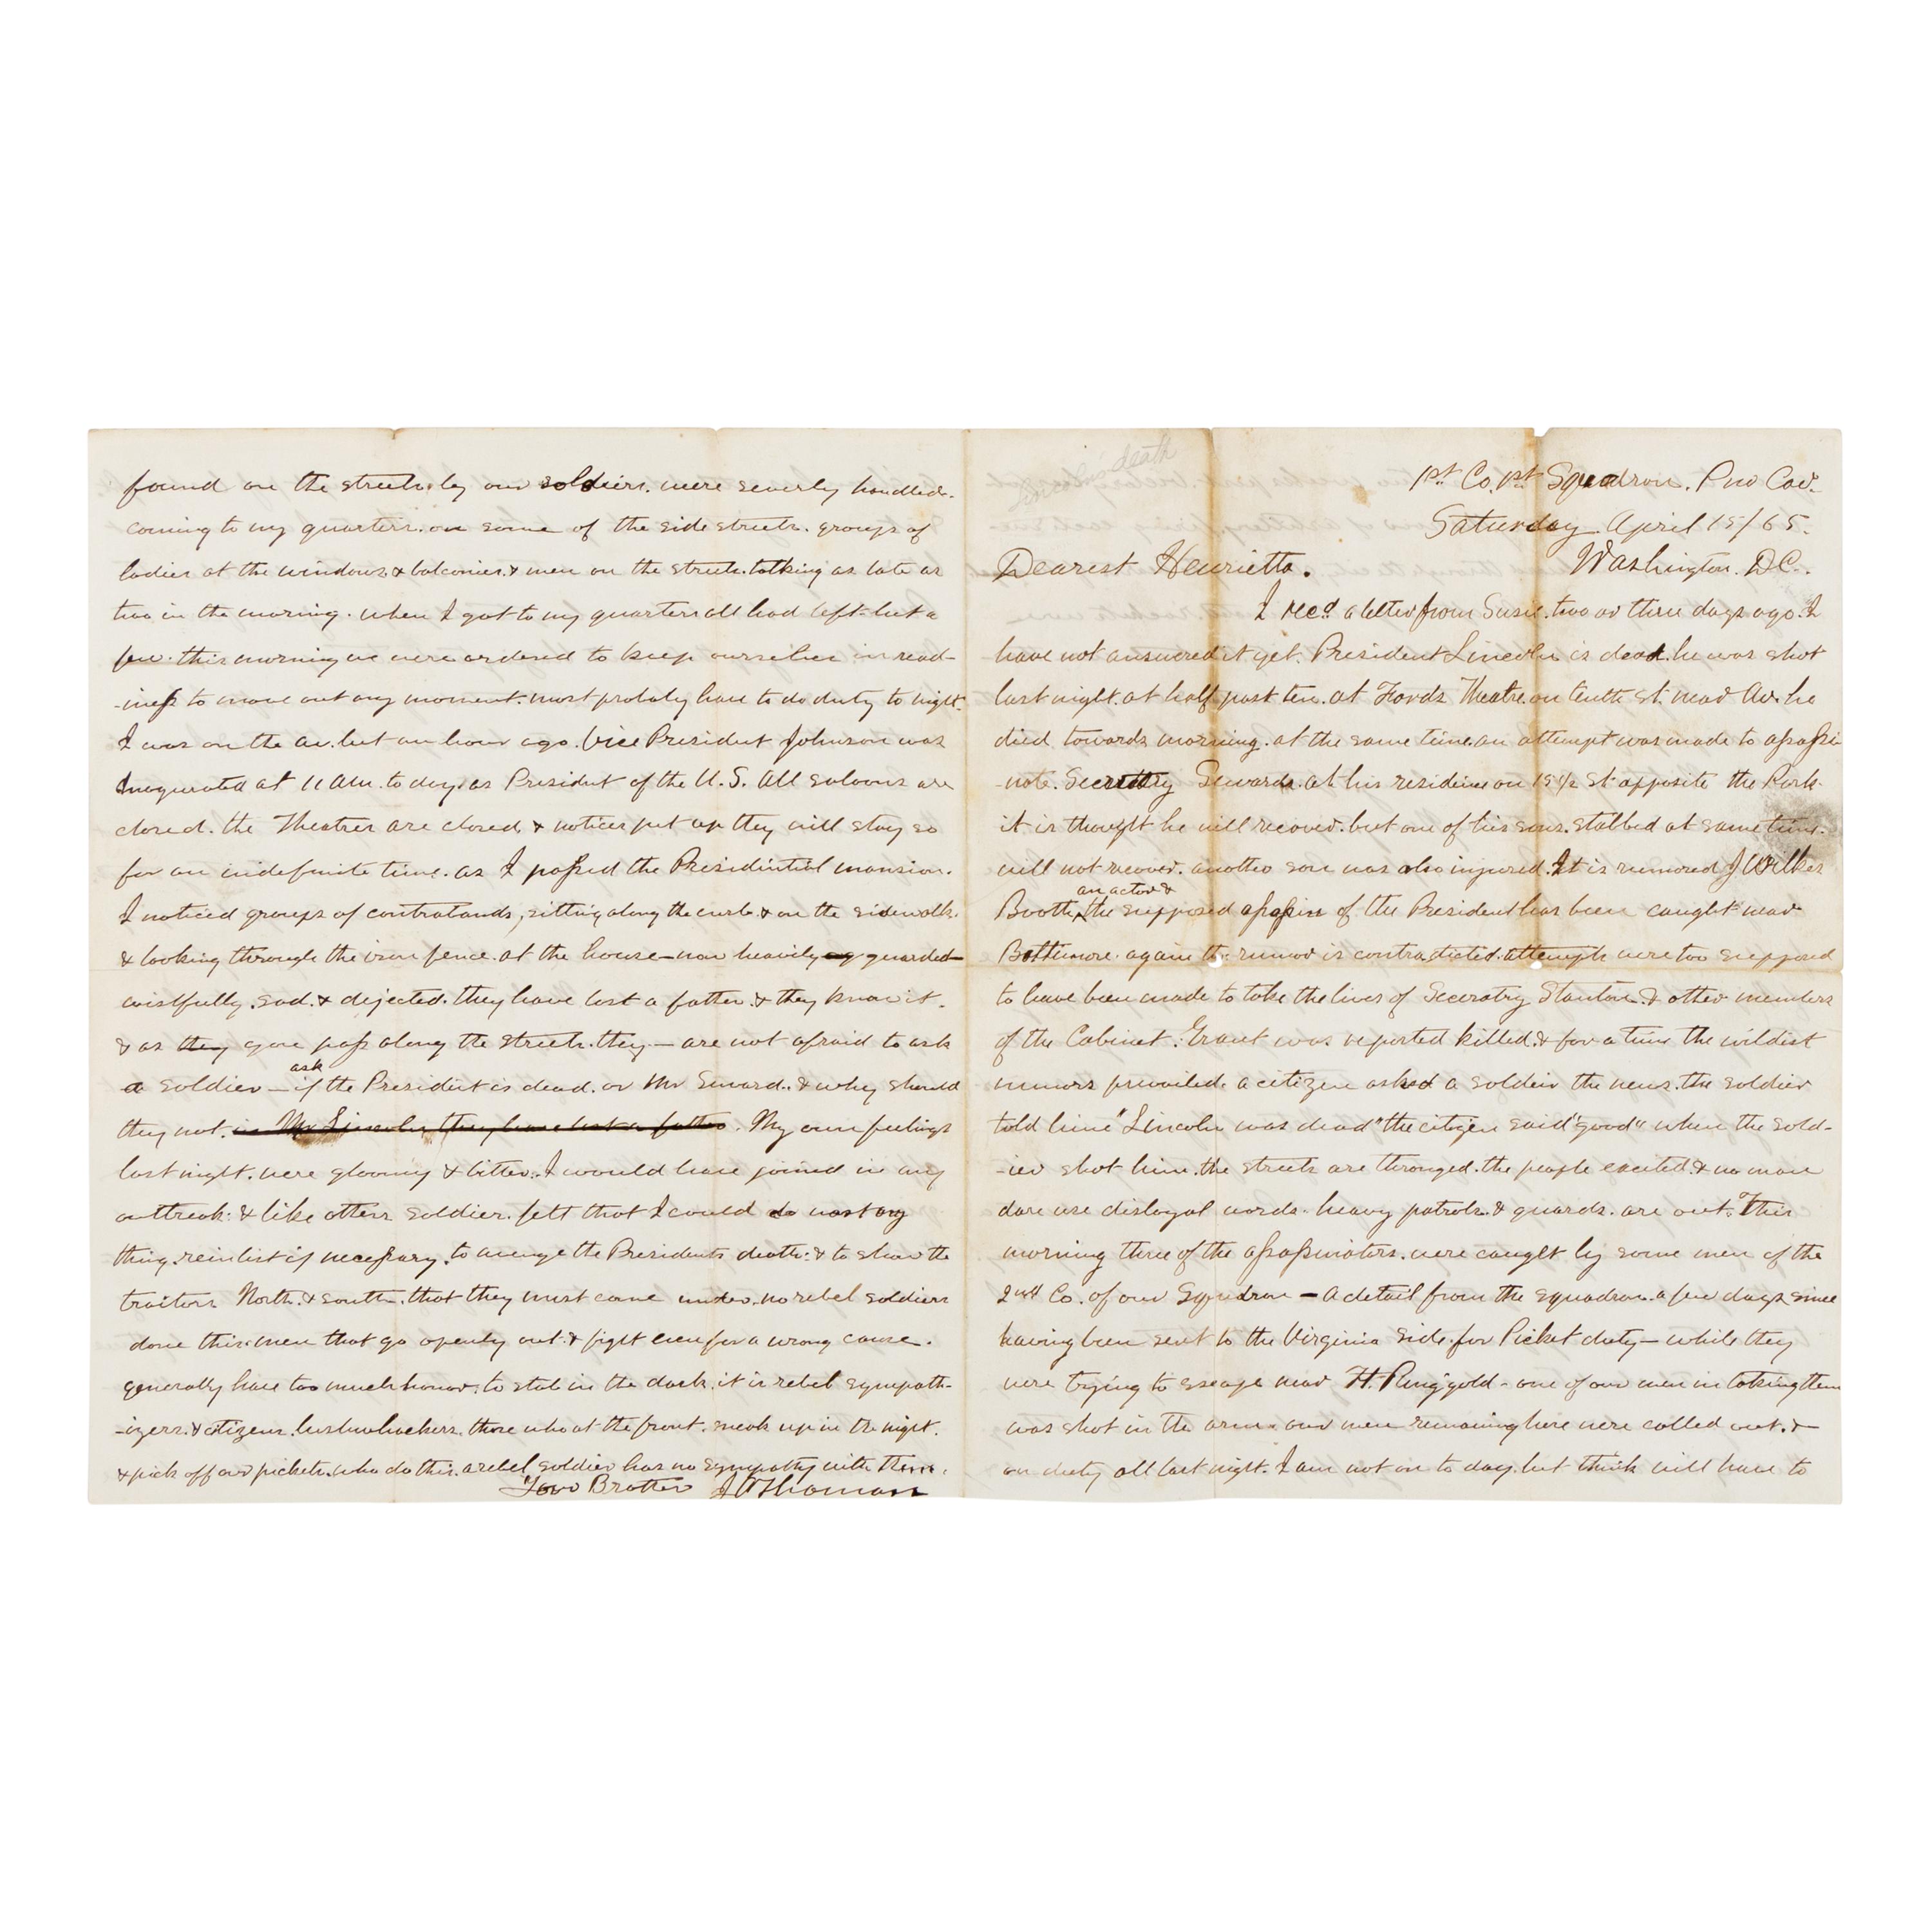 Lincoln's death
1st Co. 1st Squadron. Pro Cav.
Saturday April 15/65.
Washington. D.C..
Dearest Henrietta.
I recd a letter from Susie. two or three days ago. I
have not answered it yet. President Lincoln is dead. he was shot
last night. at half past ten. at Fords Theatre. on tenth st. near Av. he
died towards morning. at the same time. an attempt was made to assassi-
-nate. Secretry Sewards. at his residence on 15 1/2 St opposite the Park.
it is thought he will recover. but one of his sons. stabbed at same time.
will not recover. another son was also injured. It is rumored J Wilkes
Booth, an actor & the supposed assassin of the President has been caught near
Baltimore. again the rumor is contradicted. attempts were too supposed
to have been made to take the lives of Secratry Stanton. & other members
of the Cabinet. Grant was reported killed. & for a time the wildest
rumors prevailed. a citizen asked a soldier the news. the soldier
told him "Lincoln was dead" the citizen said "good" when the sold-
-ier shot him. the streets are thronged. the people excited. & no man
dare use disloyal words. heavy patrols. & guards. are out. This
morning three of the assassinators. were caught by some men of the
2nd Co. of our Squadron — a detail from the squadron. a few days since
having been sent to the Virginia side. for Picket duty — while they
were trying to escape near Ft. Ringgold - one of our men in taking them
was shot in the arm. our men remaining here were called out. &
on duty all last night. I am not on to day. but think will have to
found on the streets. by our soldiers. were severly handled.
coming to my quarters. on some of the side streets. groups of
ladies at the windows & balconies. & men on the streets. talking as late as
two in the morning. when I got to my quarters all had left but a
few. this morning we were ordered to keep ourselves in read-
-iness to move out any moment. most probaly have to do duty to night.
I was on the av. but an hour ago. Vice President Johnson was
inaugurated at 11 am. to day. as President of the U.S. All saloons are
closed. the Theatres are closed, & notices put up they will stay so
for an indefinite time. as I passed the Presidintial mansion.
I noticed groups of contrabands, sitting along the curb. & on the sidewalk.
& looking through the iron fence. at the house — now heavily guarded —
wistfully. sad. & dejected. they have lost a father. & they know it.
& as they you pass along the streets. they — are not afraid to ask
a soldier — ask if the President is dead. or Mr Seward.. & why should
they not. in Mr Lincoln they have lost a father. My own feelings
last night. were gloomy & bitter. I would have joined in any
outbreak. & like others soldier. felt that I could do most any
thing. reinlist if necessary. to avenge the Presidents death. & to show the
traitors North. & south. that they must come under. no rebel soldiers
done this. men that go openly out. & fight even for a wrong cause.
generally have too much honor. to stab in the dark. it is rebel sympath-
-izers. & citizens. bushwhackers. those who at the front. sneak up in the night.
& pick off our pickets. who do this. a rebel soldier has no sympathy with them.
Your Brother J W Thomas